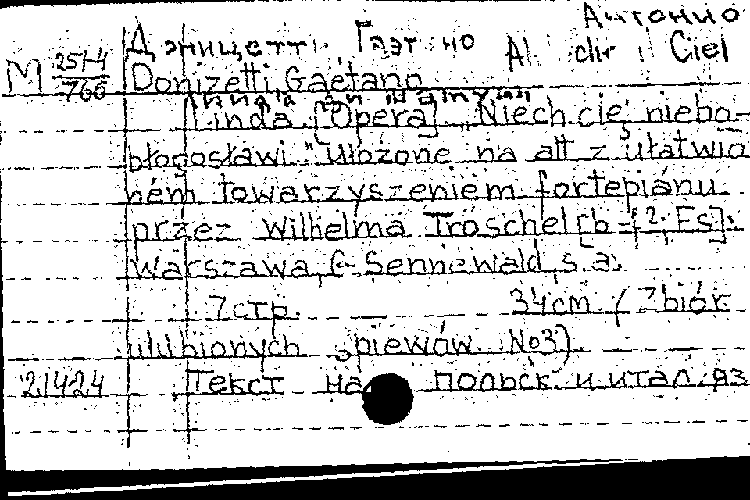 Антонио
Доницетти Гаэтано Al dir Ciel
M 251-4/766 Donizetti, Gaetano
Линда ди Шамуни
Linda [Opera] „Niech cię nieba
błogosławi." Ułożone na alt z ułatwio
ném towarzyszeniem fortepianu
przez Wilhelma Troschel [b-f2. Es].
Warszawa, G. Sennewald, s.a.
7 стр. — 34 cm. (Zbiór
ulubionych śpiewów №3)
21424 Текст на польск. и итал. яз